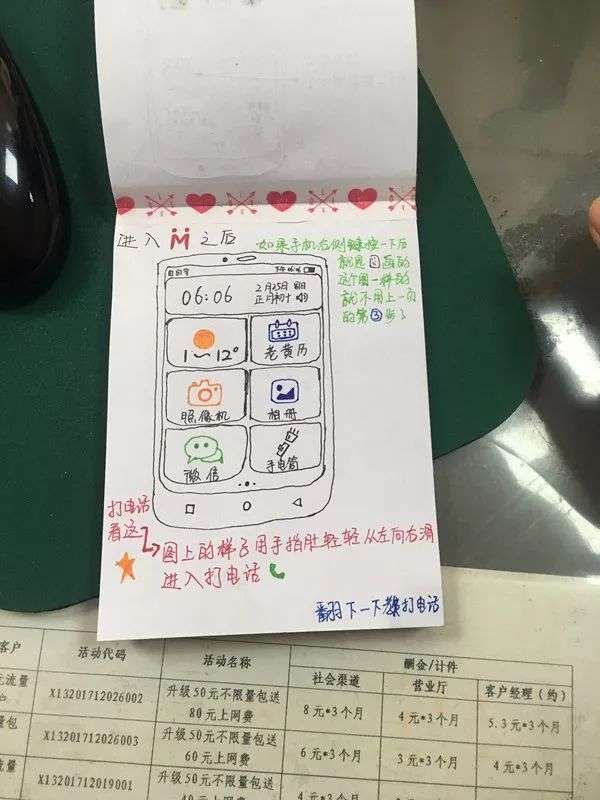 进入 M 之后
如果手机右侧键按一下后
就是 画的
这个图一样的
就不用上一页
的第③步了
中国移动
下午6:06
06:06
2月25日 周日
正月初十
1～12°
老黄历
照像机
相册
微信
手电筒
打电话
看这
图上的样子用手指肚轻轻从左向右滑
进入打电话
翻下一下教打电话
客户
活动代码
活动名称
酬金/计件
社会渠道
营业厅
客户经理（约）
元流量
X13201712026002
升级50元不限量包送
80元上网费
8元*3个月
4元*3个月
5.3元*3个月
量包
X13201712026003
升级50元不限量包送
60元上网费
6元*3个月
3元*3个月
4元*3个月
流量
X13201712019001
升级50元不限量包送